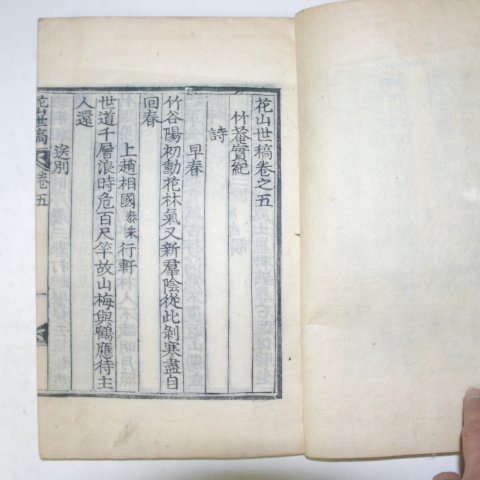 花山世稿卷之五
竹菴實紀
詩
早春
竹谷陽初動花林氣又新羣陰從此剝寒盡自
回春
上趙相國泰采行軒
世道千層浪時危百尺竿故山梅與鶴應待主
人還
送別
花山世稿
卷五